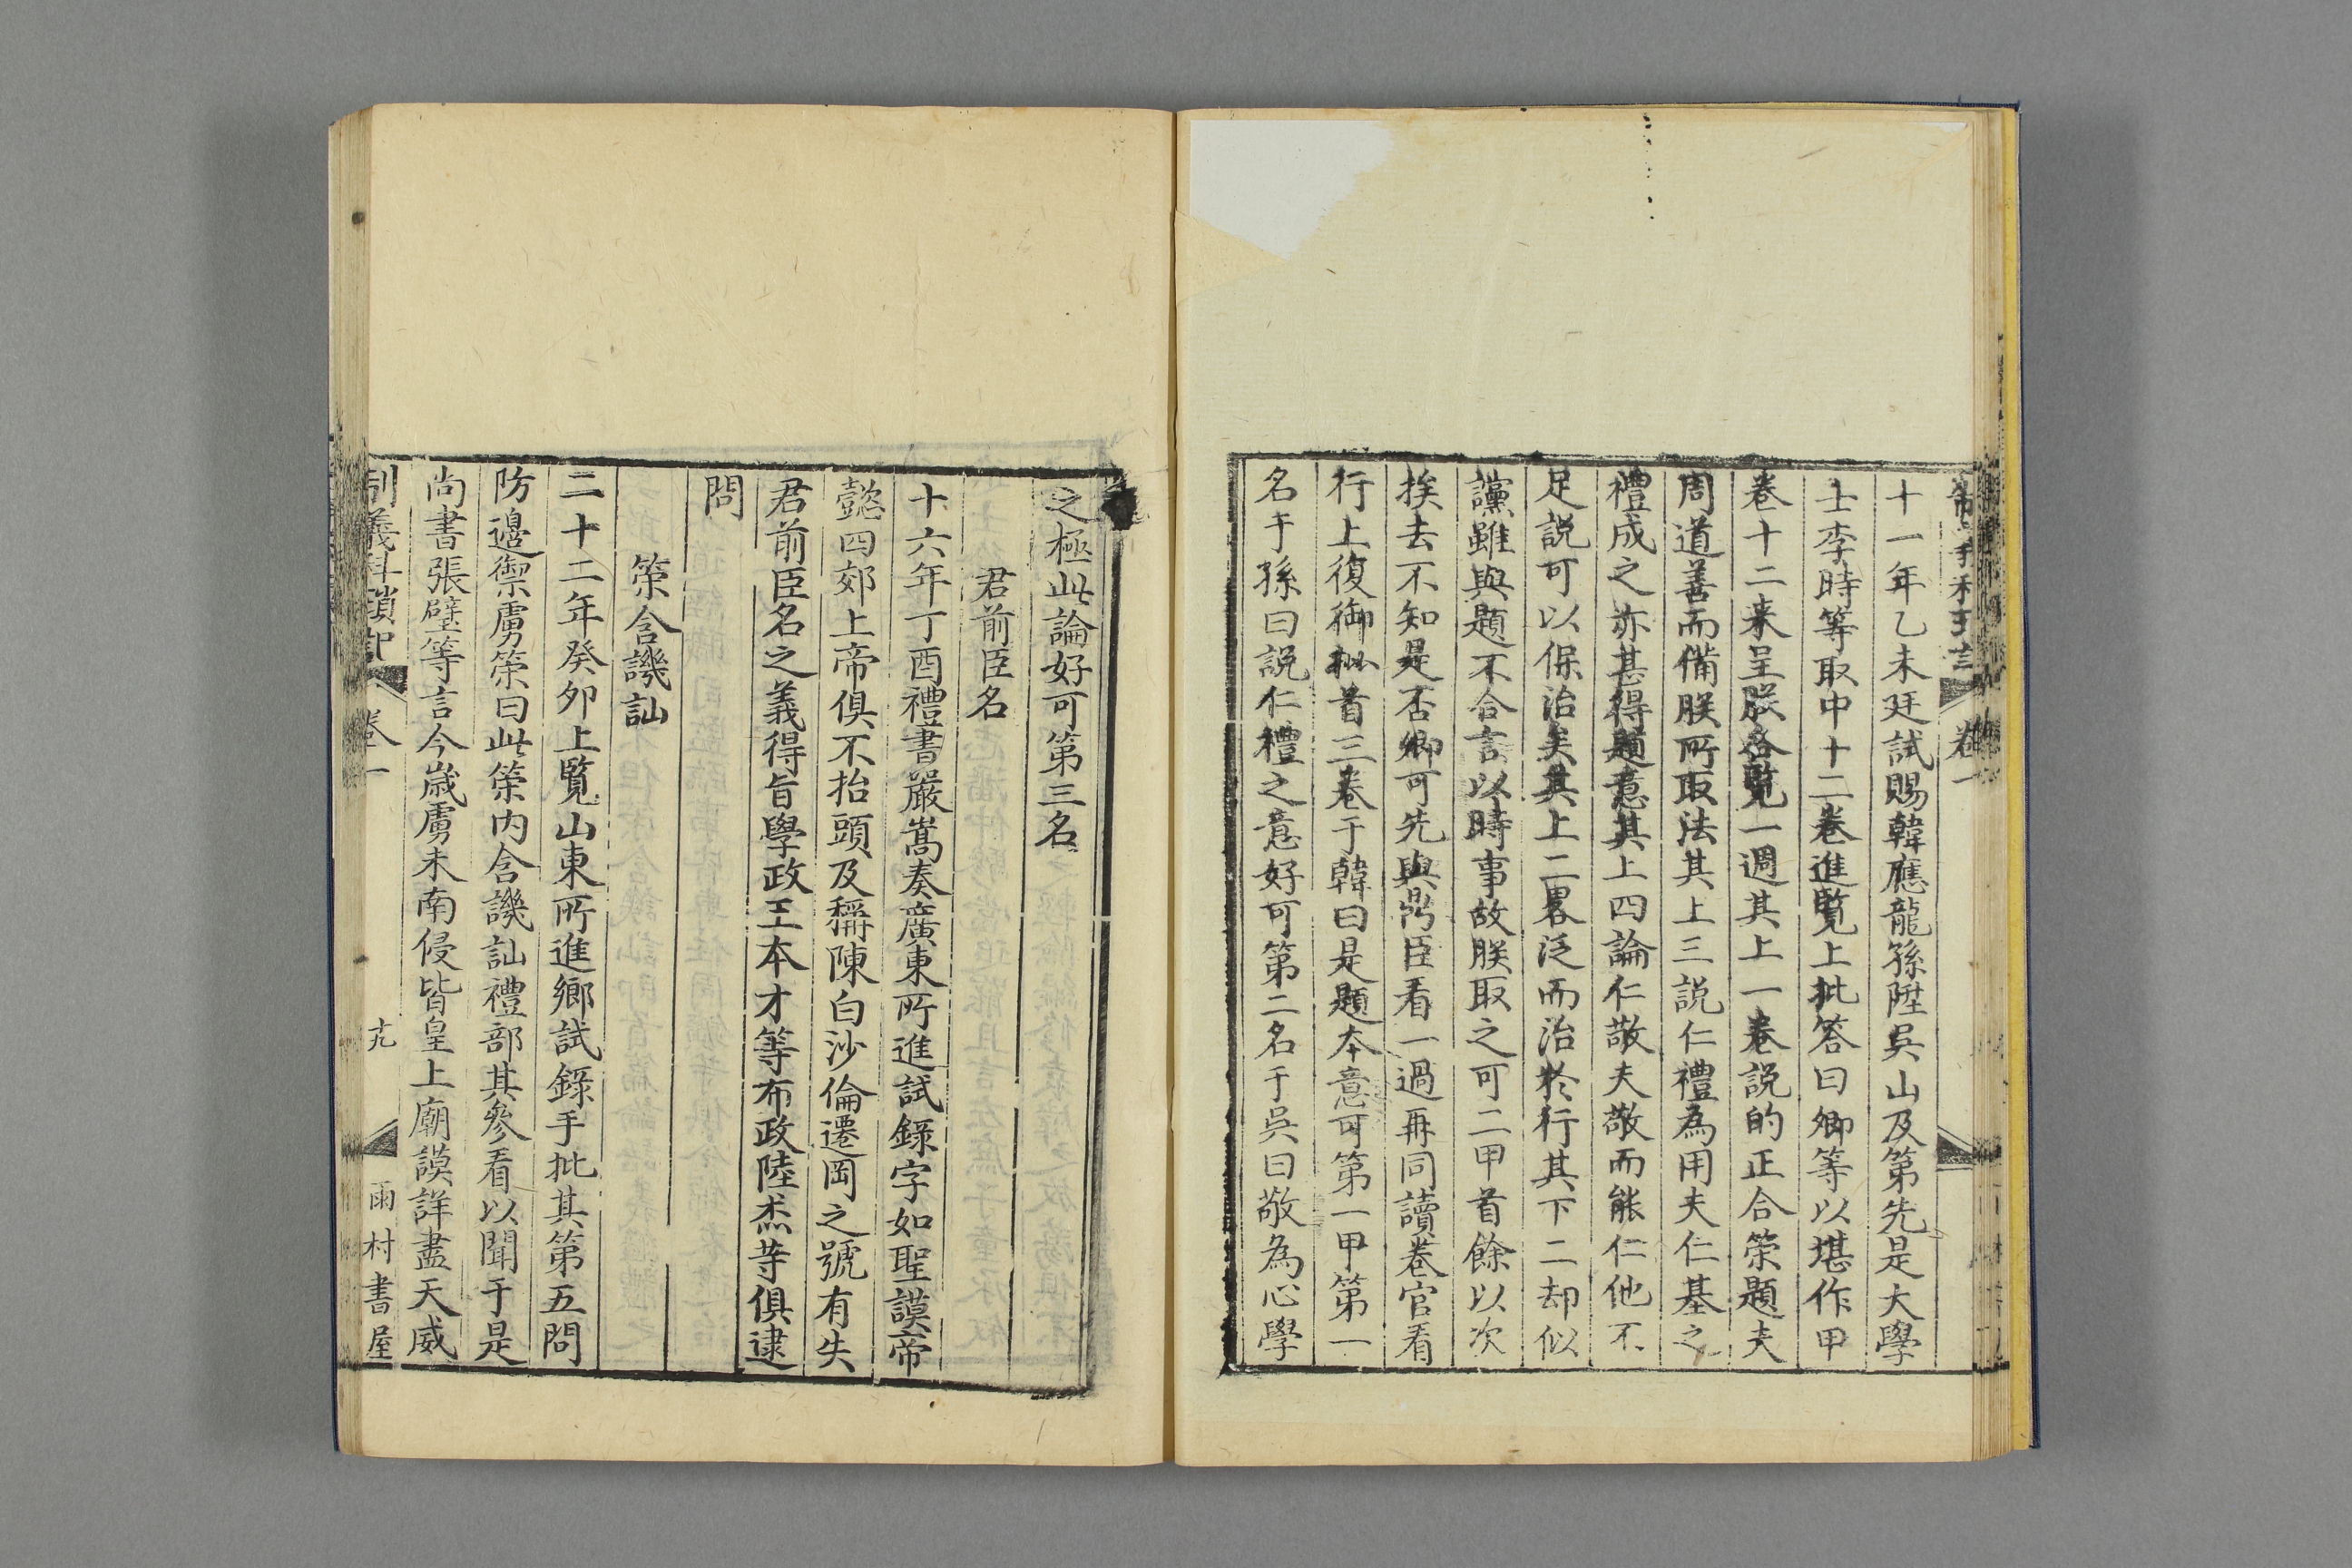 十一年乙未廷試賜韓應龍孫陞吳山及第先是大學
士李時等取中十二巻進覽上批答曰卿等以堪作甲
巻十二来呈朕各覽一週其上一巻説的正合策題夫
周道善而備朕所取法其上三説仁禮為用夫仁基之
禮成之亦甚得題意其上四論仁敬夫敬而能仁他不
足説可以保治矣其上二畧泛而治於行其下二却似
讜雖與題不合言以時事故朕取之可二甲首餘以次
挨去不知是否卿可先與鼎臣看一過再同讀巻官看
行上復御批首三巻于韓曰是題本意可第一甲第一
名于孫曰説仁禮之意好可第二名于吳曰敬為心學
之極此論好可第三名
君前臣名
十六年丁酉禮書嚴嵩奏廣東所進試錄字如聖謨帝
懿四郊上帝俱不抬頭及稱陳白沙倫遷岡之號有失
君前臣名之義得旨學政王本才等布政陸杰等俱逮
問
策含譏訕
二十二年癸夘上覧山東所進鄉試錄手批其第五問
防邉禦虜策曰此策内含譏訕禮部其參看以聞于是
尚書張璧等言今嵗虜未南侵皆皇上廟謨詳盡天威
制義科瑣記 卷一 十九 雨村書屋